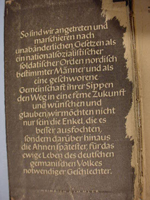 So sind wir angetreten und
marschieren nach
unabänderlichen Gesetzen als
ein nationalsozialistischer
soldatischer Orden nordisch
bestimmter Männer und als
eine geschworene
Gemeinschaft ihrer Sippen
den Weg in eine ferne Zukunft
und wünschen und
glauben, wir möchten nicht
nur sein die Enkel, die es
besser ausfochten,
sondern darüber hinaus
die Ahnen spätester, für das
ewige Leben des deutschen
germanischen Volkes
notwendiger Geschlechter.